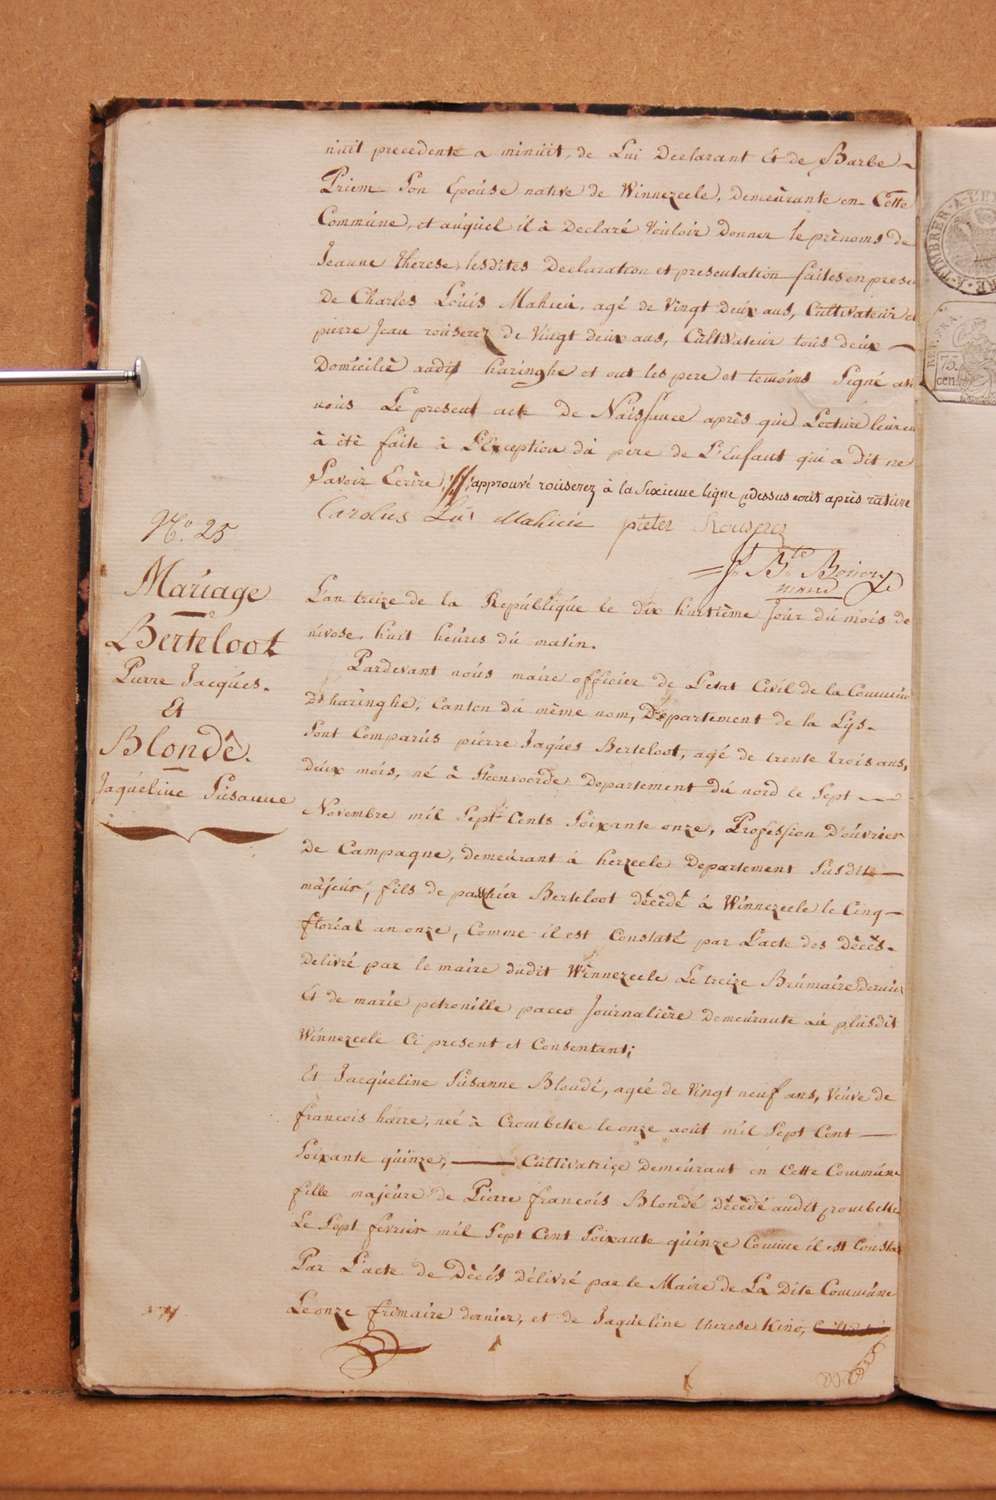 nuit precedente a minuit, de Lui Declarant Et de Barbe
Priem Son Epouse native de Winnezeele, demeurante en Cette
Commune, et auquel il à Declaré Vouloir Donner le prènoms de
Jeanne therese, lesdites Declaration et presentation faites en prese
de Charles Louis Mahieu, agé de Vingt deux ans, Cultivateur et
pierre Jean rouserez de Vingt deux ans, Cultivateur tous deux
Domicilié audit haringhe et ont les pere et temoins Signé av
nous Le present acte de Naissance après que Lecture leur en
à été faite à L'Exception du pere de L'Enfant qui a dit ne
Savoir Ecrire, approuvé rouserez à la Sixieme ligne cidessus ecrit après rature
Carolus Lu Mahieu pieter Rouserez
J. Bte
maire
No. 25
Mariage
Berteloot
Pierre Jacques.
Et
Blondé.
Jaquéline Susanne
L'an treize de la République le dix huitième jour du mois de
nivose, huit heures du matin.
Pardevant nous maire officier de L'etat Civil de la Commune
D'haringhe, Canton du même nom, Département de la Lÿs.
Sont Comparus pierre Jaques Berteloot, agé de trente trois ans,
deux mois, né à Steenvoorde Departement du nord le Sept
Novembre mil Sept Cents Soixante onze, Profession D'ouvrier
de Campagne, demeurant à herzeele Departement Susdit
majeur, fils de paschier Berteloot décédé à Winnezeele le Cinq
floréal an onze, Comme il est Constaté par L'acte des Décès
delivré par le maire dudit Winnezeele Le treize Brumaire dernier
Et de marie petronille pacco Journalière demeurante au plusdit
Winnezeele Ci present et Consentant;
Et Jacqueline Susanne Blondé, ageé de Vingt neuf ans, Veuve de
francois harre, neé à Crombeke le onze août mil Sept Cent
Soixante quinze, Cultivatrice demeurant en Cette Commune
fille majeure de Pierre francois Blondé décèdé audit crombeke
Le Sept fevrier mil Sept Cent Soixante quinze Comme il est Consta
Par L'acte de Décés délivré par le Maire de La Dite Commune
Le onze frimaire dernier, et de Jaqueline therese Kino,